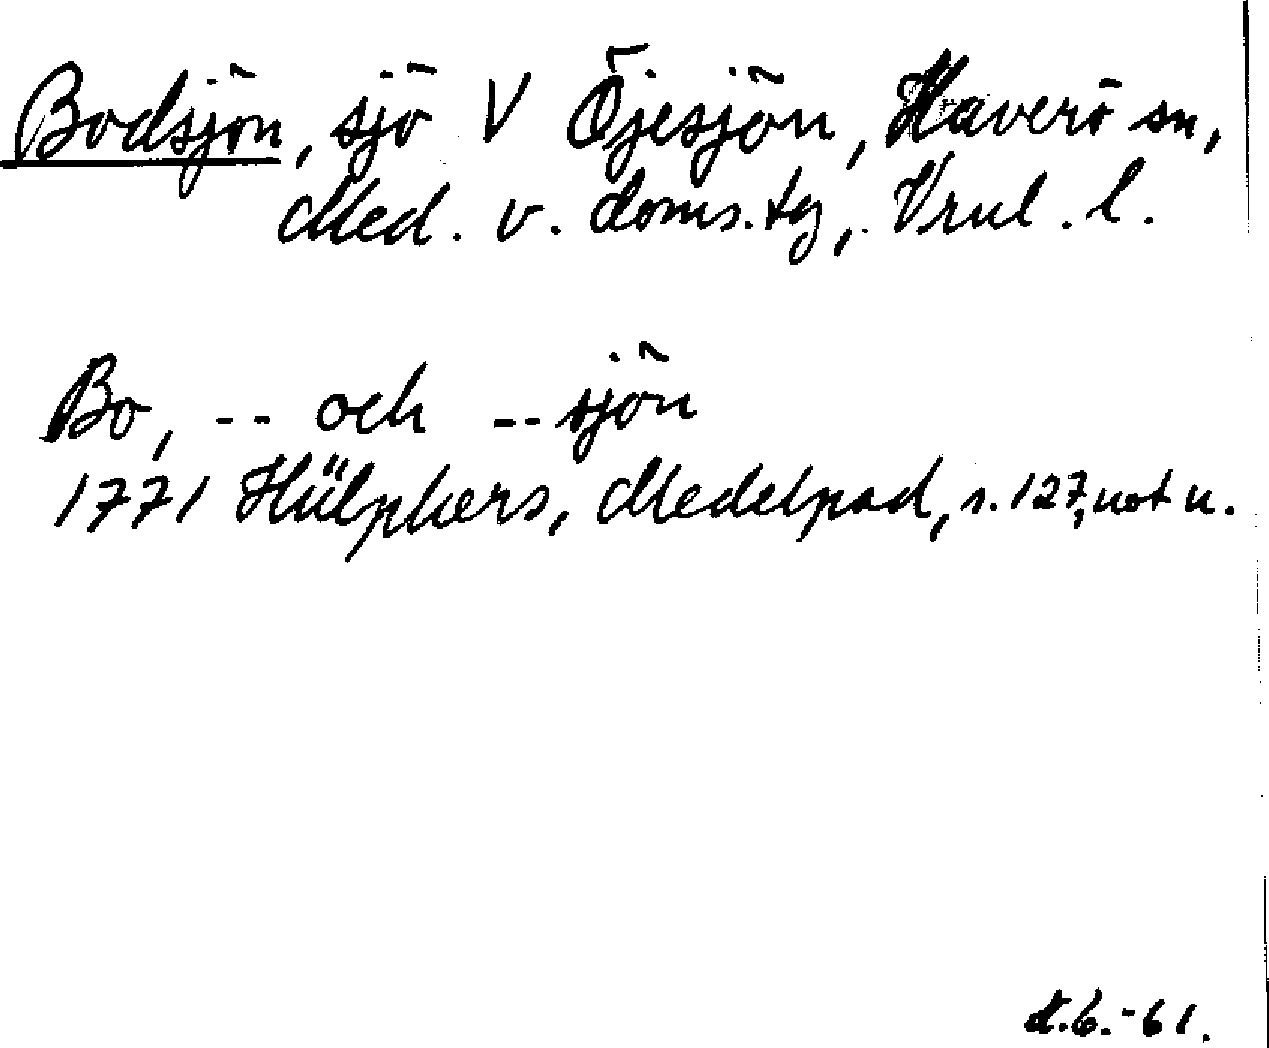 Bodsjön, sjö V Öjesjön, Haverö sn,
Med. v. doms.tg, Vrnl. l.
Bo, -- och -- sjön
1771 Hülphers, Medelpad, s. 127, not u.